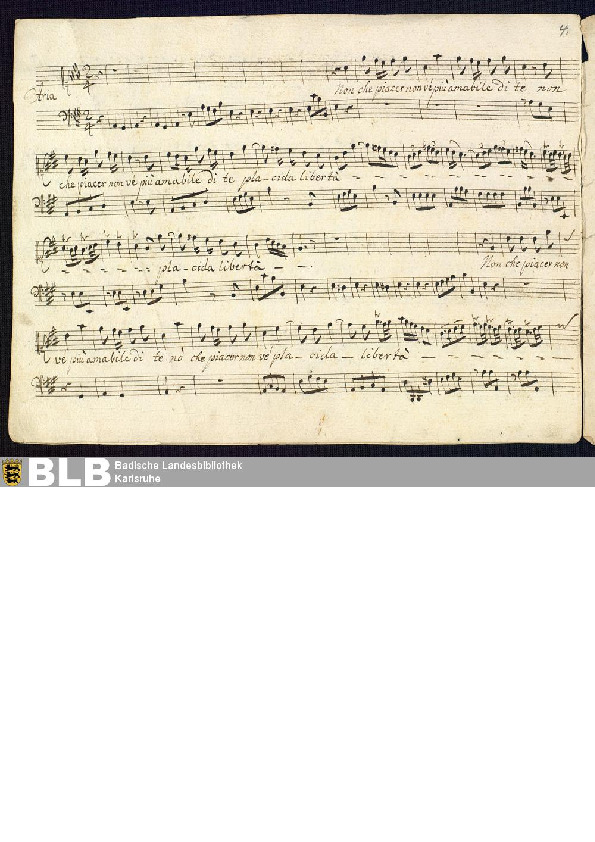 Aria
Non che piacer non vè più amabile di te non
che piacer non vè più amabile di te pla-cida libertà
pla-cida libertà
Non che piacer non
vè più amabile di te nò che piacer non vè pla-cida-libertà
BLB Badische Landesbibliothek
Karlsruhe